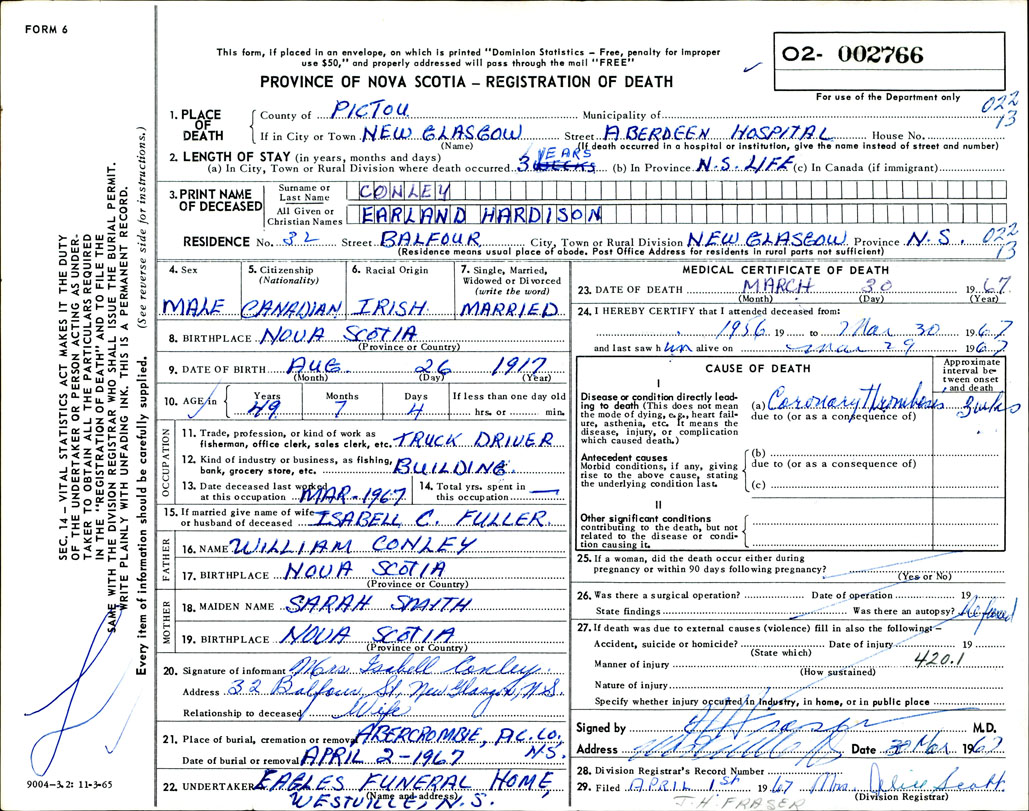 FORM 6
This form, if placed in an envelope, on which is printed "Dominion Statistics – Free, penalty for improper
use $50," and properly addressed will pass through the mail "FREE"
PROVINCE OF NOVA SCOTIA – REGISTRATION OF DEATH
02- 002766
For use of the Department only
022
13
1. PLACE OF DEATH
County of PICTOU Municipality of
If in City or Town NEW GLASGOW Street ABERDEEN HOSPITAL House No.
(Name) (If death occurred in a hospital or institution, give the name instead of street and number)
2. LENGTH OF STAY (in years, months and days)
(a) In City, Town or Rural Division where death occurred 3 WEEKS YEARS (b) In Province N.S. LIFE (c) In Canada (if immigrant)
3. PRINT NAME OF DECEASED
Surname or Last Name CONLEY
All Given or Christian Names EARLAND HARDISON
RESIDENCE No. 32 Street BALFOUR City, Town or Rural Division NEW GLASGOW Province N.S. 022
13
(Residence means usual place of abode. Post Office Address for residents in rural parts not sufficient)
4. Sex MALE
5. Citizenship (Nationality) CANADIAN
6. Racial Origin IRISH
7. Single, Married, Widowed or Divorced (write the word) MARRIED
8. BIRTHPLACE NOVA SCOTIA
(Province or Country)
9. DATE OF BIRTH AUG 26 1917
(Month) (Day) (Year)
10. AGE in Years 49 Months 7 Days 4 If less than one day old hrs. or min.
OCCUPATION
11. Trade, profession, or kind of work as
fisherman, office clerk, sales clerk, etc. TRUCK DRIVER
12. Kind of industry or business, as fishing,
bank, grocery store, etc. BUILDING
13. Date deceased last worked
at this occupation MAR-1967
14. Total yrs. spent in
this occupation —
15. If married give name of wife
or husband of deceased ISABELL C. FULLER
FATHER
16. NAME WILLIAM CONLEY
17. BIRTHPLACE NOVA SCOTIA
(Province or Country)
MOTHER
18. MAIDEN NAME SARAH SMITH
19. BIRTHPLACE NOVA SCOTIA
(Province or Country)
20. Signature of informant Mrs. Isabell Conley
Address 32 Balfour St. New Glasgow, N.S.
Relationship to deceased Wife
21. Place of burial, cremation or removal ABERCROMBIE, PIC. CO, N.S.
Date of burial or removal APRIL 2-1967
22. UNDERTAKER EAGLES FUNERAL HOME,
(Name and address)
WESTVILLE, N.S.
MEDICAL CERTIFICATE OF DEATH
23. DATE OF DEATH MARCH 30 1967
(Month) (Day) (Year)
24. I HEREBY CERTIFY that I attended deceased from:
1956 19 to Mar 30 1967
and last saw him alive on Mar 29 1967
CAUSE OF DEATH
Approximate interval between onset and death
I
Disease or condition directly leading to death (This does not mean
the mode of dying, e.g., heart failure, asthenia, etc. It means the
disease, injury, or complication
which caused death.)
(a) Coronary Thrombosis 3 wks
due to (or as a consequence of)
Antecedent causes
Morbid conditions, if any, giving
rise to the above cause, stating
the underlying condition last.
(b)
due to (or as a consequence of)
(c)
II
Other significant conditions
contributing to the death, but not
related to the disease or condition causing it.
25. If a woman, did the death occur either during
pregnancy or within 90 days following pregnancy?
(Yes or No)
26. Was there a surgical operation? Date of operation 19
State findings Was there an autopsy? Refused
27. If death was due to external causes (violence) fill in also the following:–
Accident, suicide or homicide? Date of injury 19
(State which)
Manner of injury 420.1
(How sustained)
Nature of injury
Specify whether injury occurred in industry, in home, or in public place
Signed by Fraser M.D.
Address Date 30 Mar 1967
28. Division Registrar's Record Number
29. Filed APRIL 1st 1967 Mrs. Scott
(Division Registrar)
J.H. FRASER
SEC. 14 – VITAL STATISTICS ACT MAKES IT THE DUTY
OF THE UNDERTAKER OR PERSON ACTING AS UNDERTAKER
TO OBTAIN ALL THE PARTICULARS REQUIRED
IN THE "REGISTRATION OF DEATH" AND TO FILE THE
SAME WITH THE DIVISION REGISTRAR WHO SHALL ISSUE THE BURIAL PERMIT.
WRITE PLAINLY WITH UNFADING INK. THIS IS A PERMANENT RECORD.
Every item of information should be carefully supplied. (See reverse side for instructions.)
9004-3.2: 11-3-65